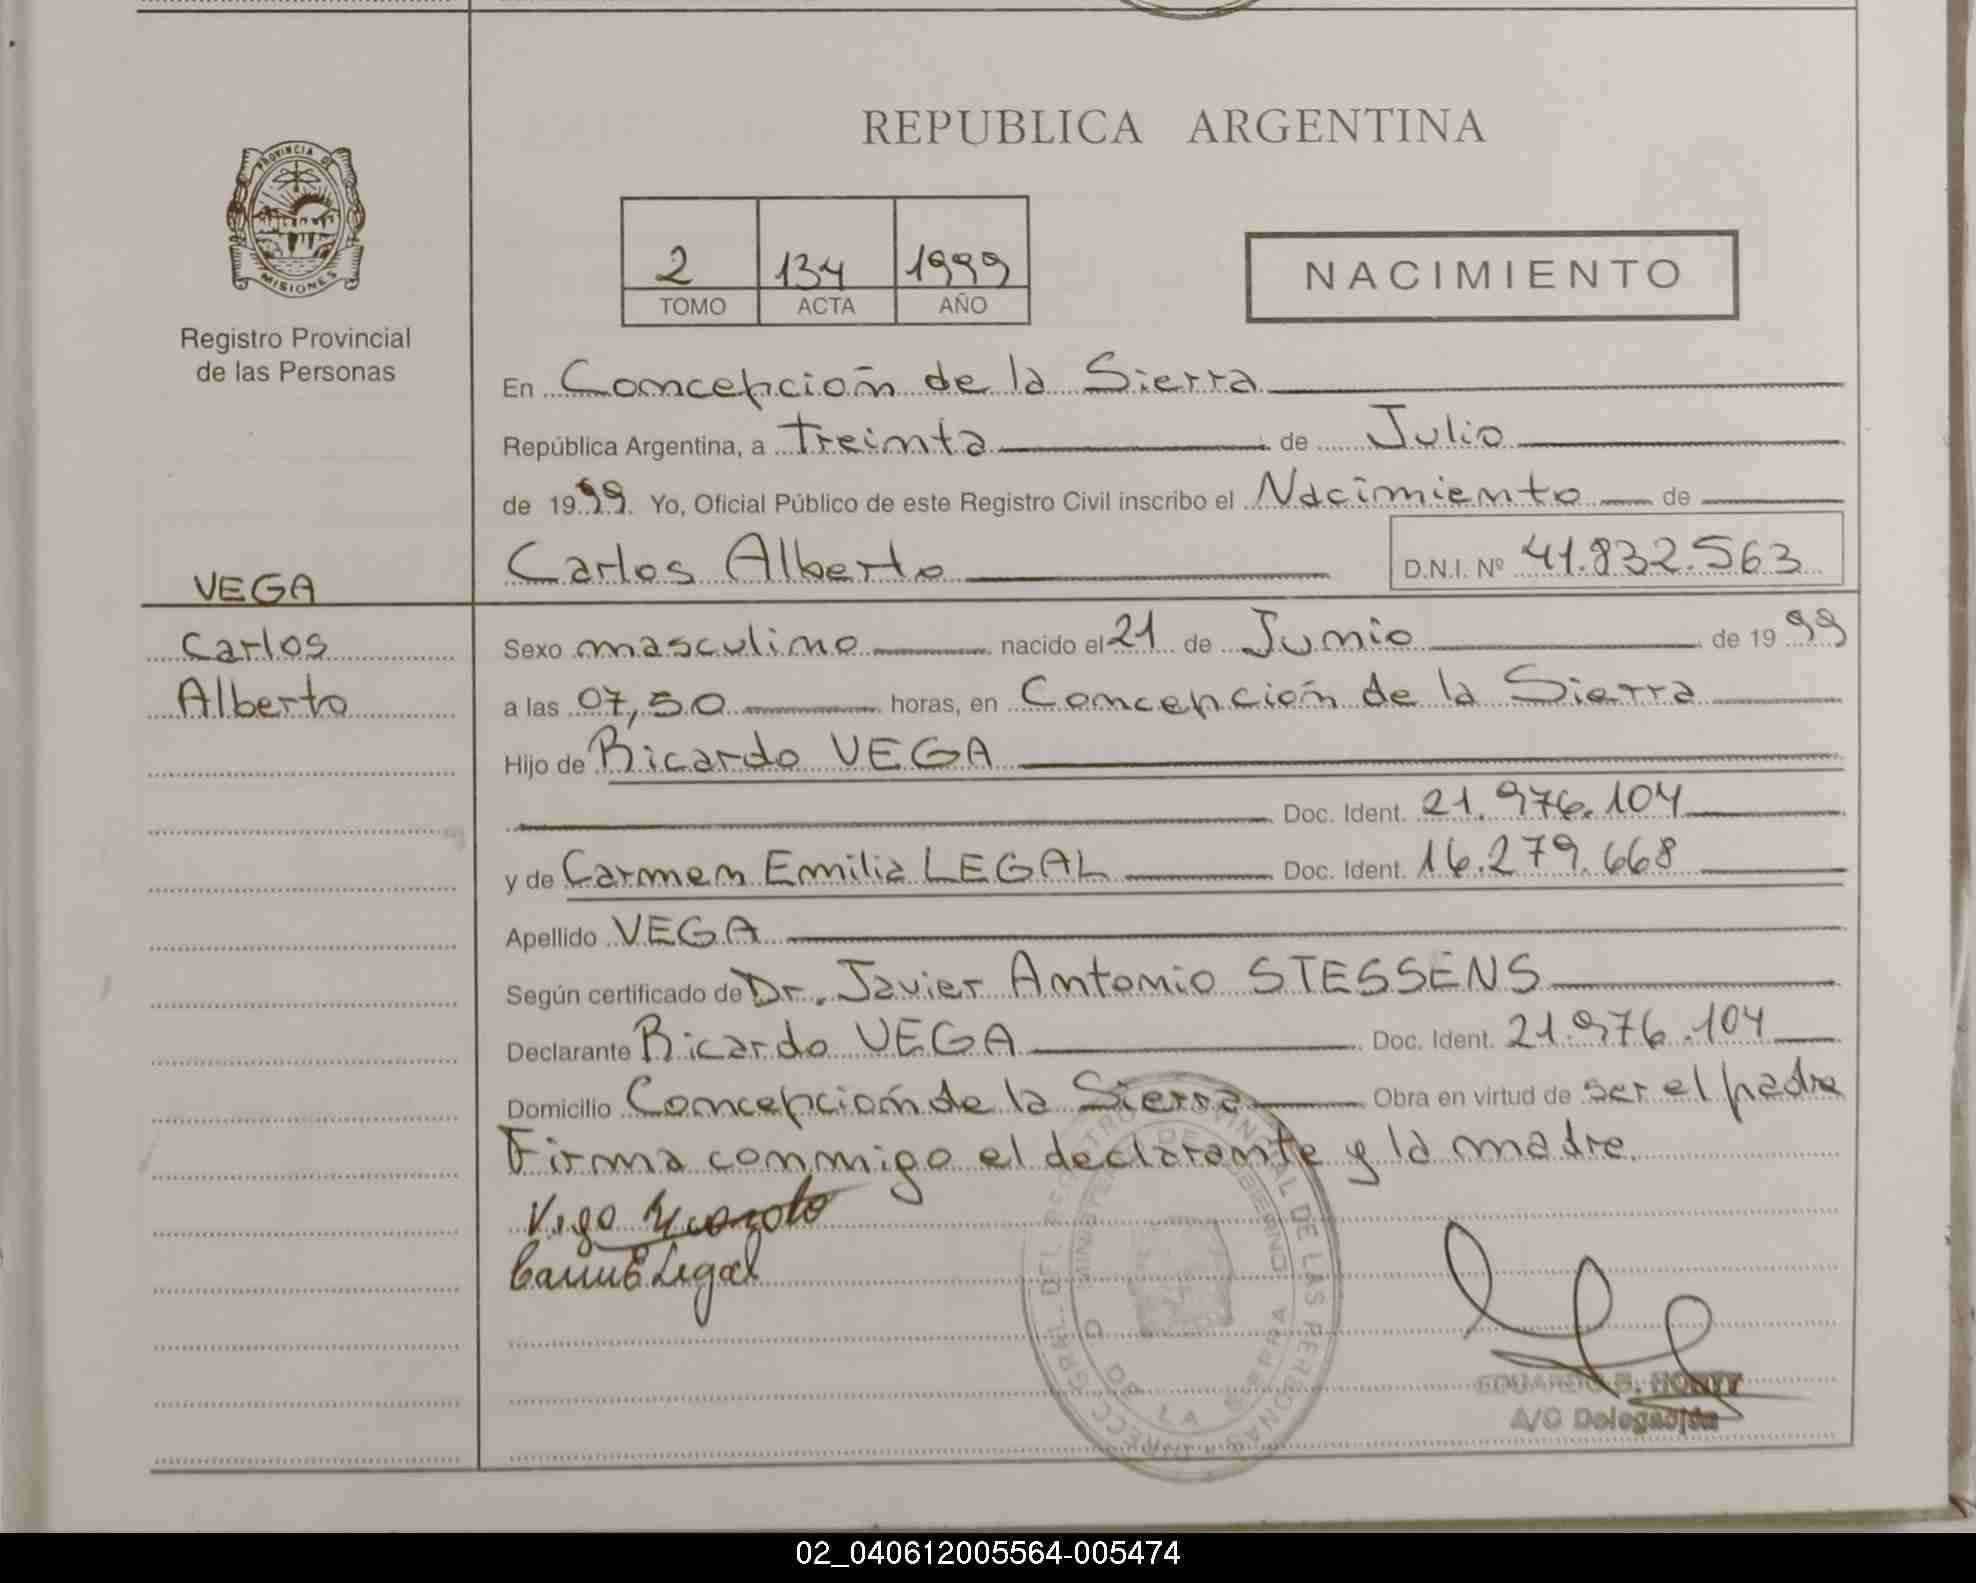 REPUBLICA ARGENTINA
PROVINCIA DE
MISIONES
Registro Provincial
de las Personas
2 134 1999
TOMO ACTA AÑO
NACIMIENTO
En Concepción de la Sierra
República Argentina, a treinta de Julio
de 1999. Yo, Oficial Público de este Registro Civil inscribo el Nacimiento de
Carlos Alberto D.N.I. Nº 41.832.563
VEGA
Carlos
Alberto
Sexo masculino nacido el 21 de Junio de 1999
a las 07,50 horas, en Concepción de la Sierra
Hijo de Ricardo VEGA
Doc. Ident. 21.976.104
y de Carmen Emilia LEGAL Doc. Ident. 16.279.668
Apellido VEGA
Según certificado de Dr. Javier Antonio STESSENS
Declarante Ricardo VEGA Doc. Ident. 21.976.104
Domicilio Concepción de la Sierra Obra en virtud de ser el padre
Firma conmigo el declarante y la madre
Legal
DIRECC. GRAL. DEL REGISTRO PROVINCIAL DE LAS PERSONAS
MINISTERIO DE GOBIERNO
DE LA SIERRA
EDUARDO
A/C Delegación
02_040612005564-005474